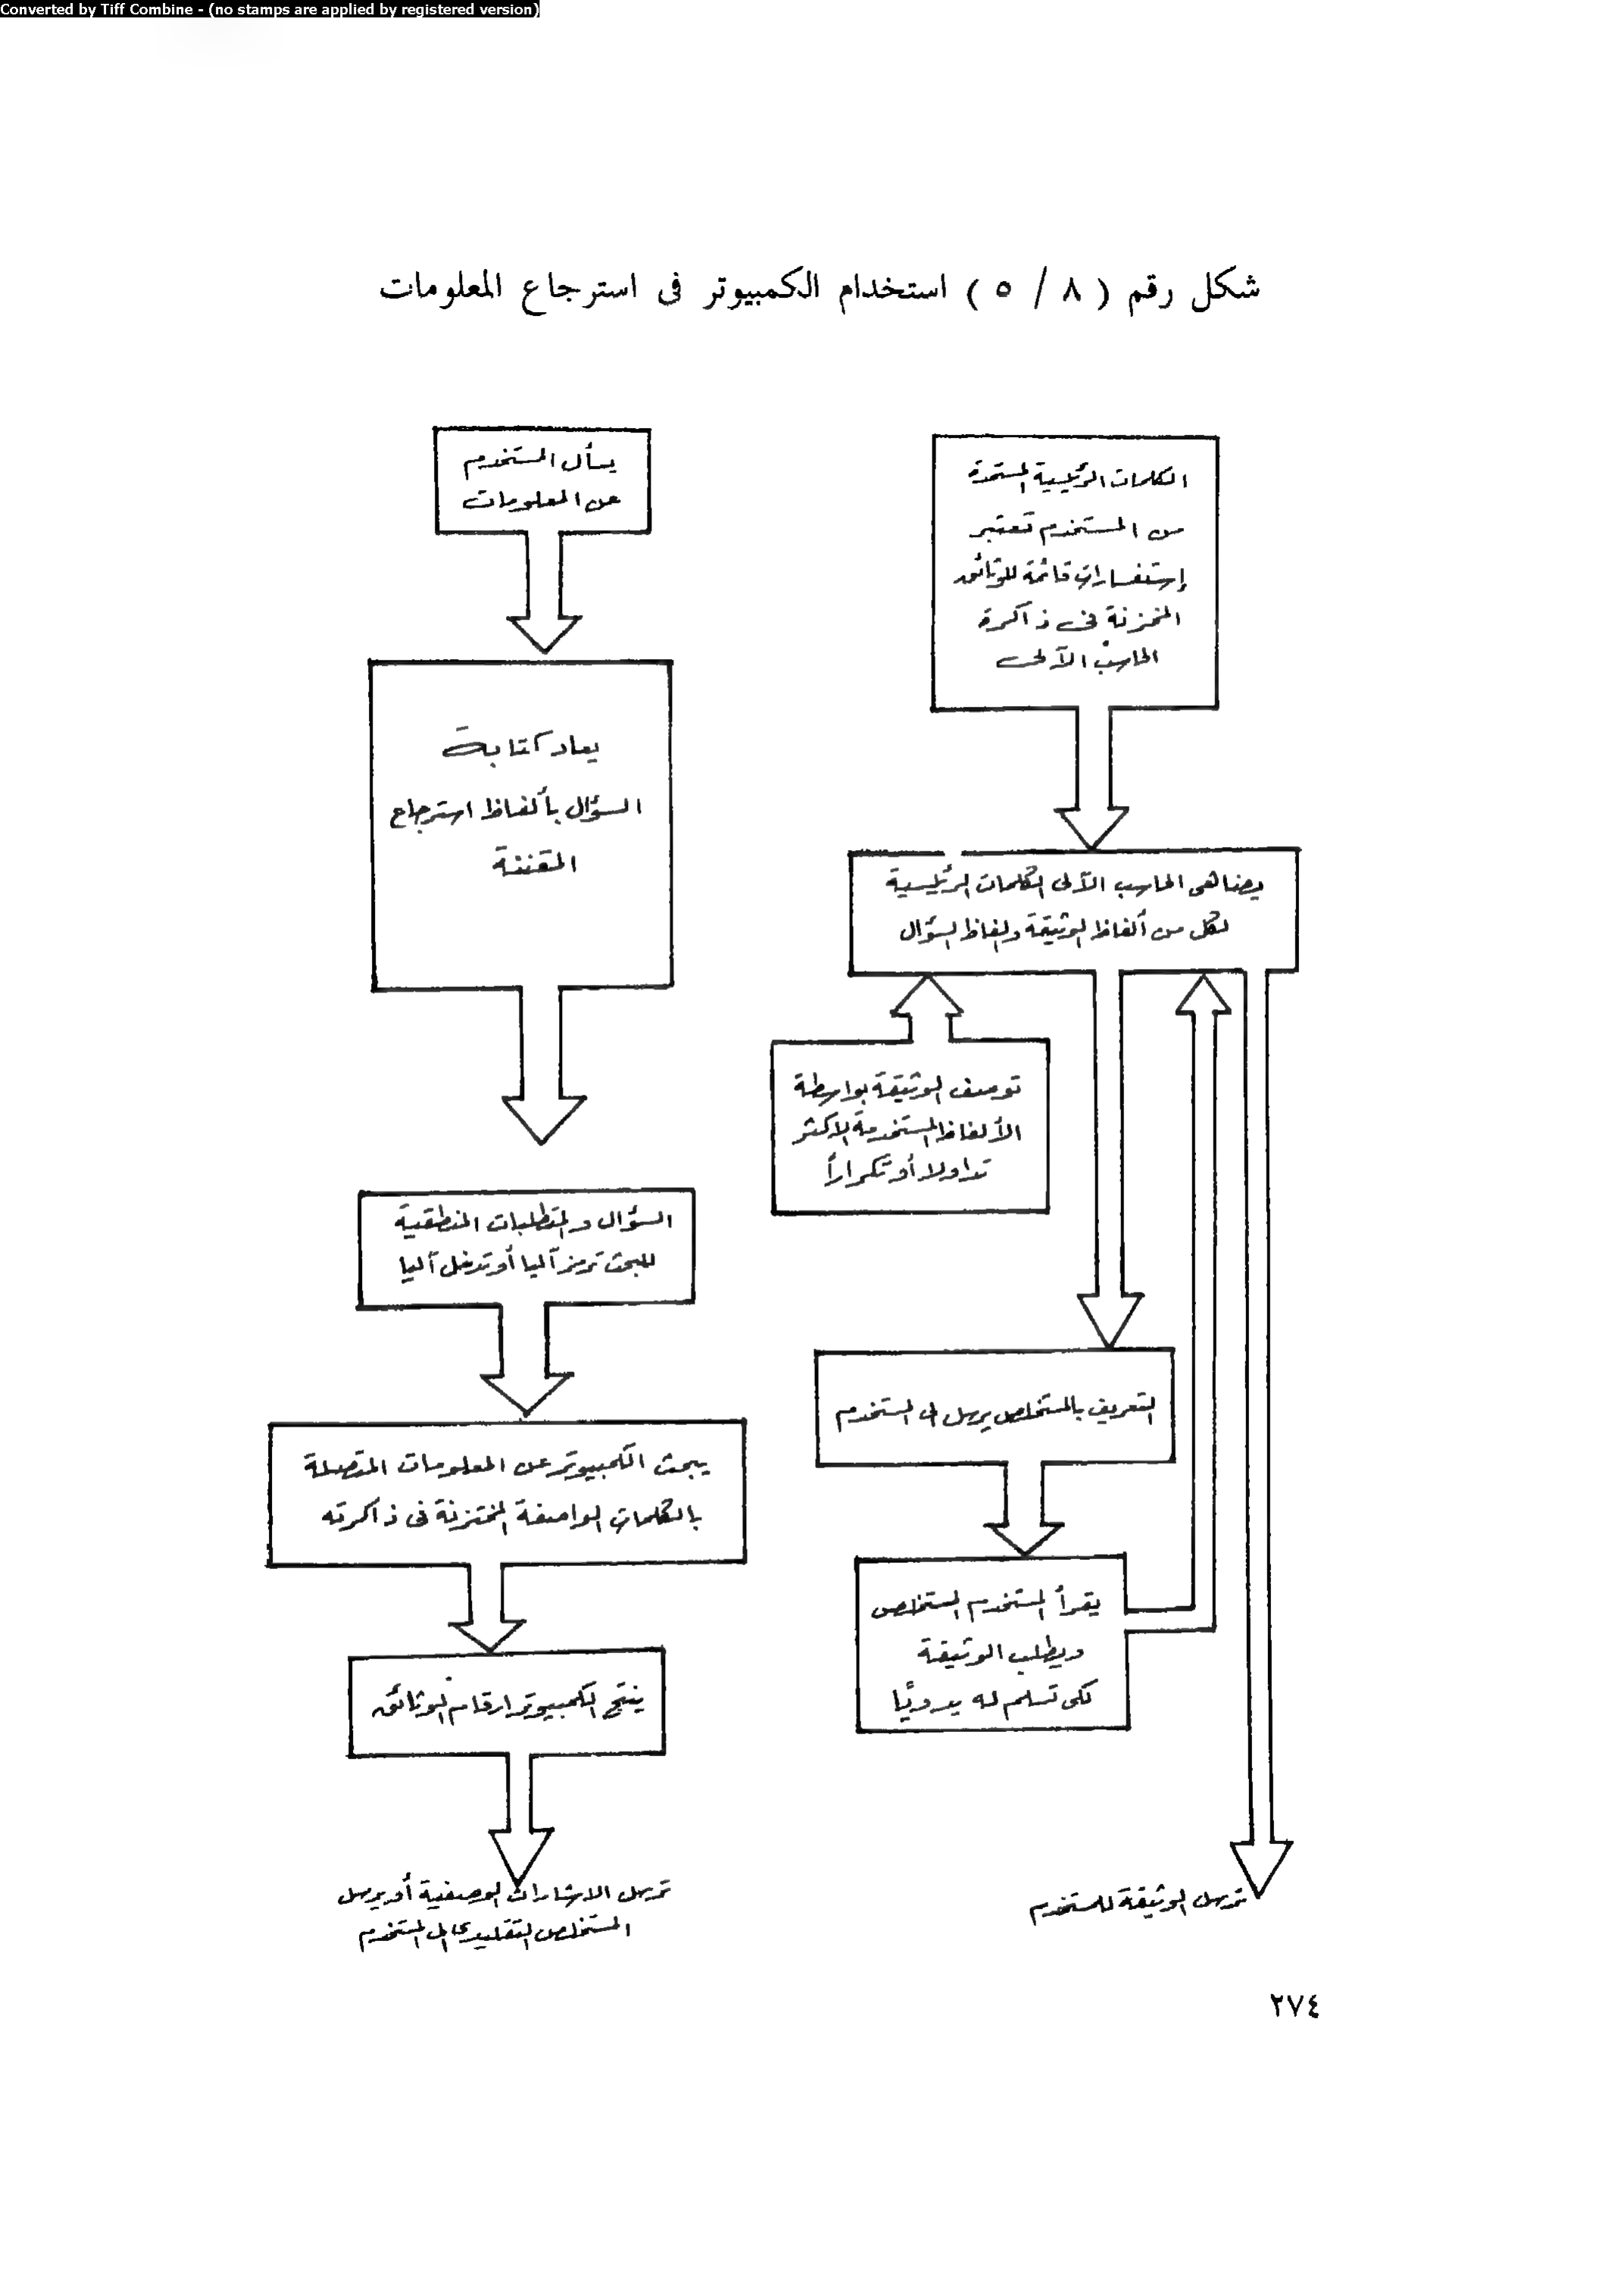 Converted by Tiff Combine - (no stamps are applied by registered version)
شكل رقم ( ٨ / ٥ ) استخدام الكمبيوتر فى استرجاع المعلومات
الكلمات الرئيسية المستمدة
من المستخدم تعتبر
إستفسارات قائمة للوثائق
المخزنة فى ذاكرة
الحاسب الآلى
يضاهى الحاسب الآلى الكلمات الرئيسية
لكل من ألفاظ الوثيقة والفاظ السؤال
توصف الوثيقة بواسطة
الألفاظ المستخدمة الاكثر
تداولا أو تكراراً
التعريف بالمستخلص يرسل الى المستخدم
يقرأ المستخدم المستخلص
ويطلب الوثيقة
لكى تسلم له يدويًا
ترسل الوثيقة للمستخدم
يسأل المستخدم
عن المعلومات
يعاد كتابة
السؤال بألفاظ استرجاع
المقننة
السؤال والمتطلبات المنطقية
للبحث ترمز آليا أو تدخل آليا
يبحث الكمبيوتر عن المعلومات المتصلة
بالكلمات الواصفة المختزنة فى ذاكرته
ينتج الكمبيوتر ارقام الوثائق
ترسل الاشارات الوصفية أو يرسل
المستخلص التقليدى الى المستخدم
٢٧٤